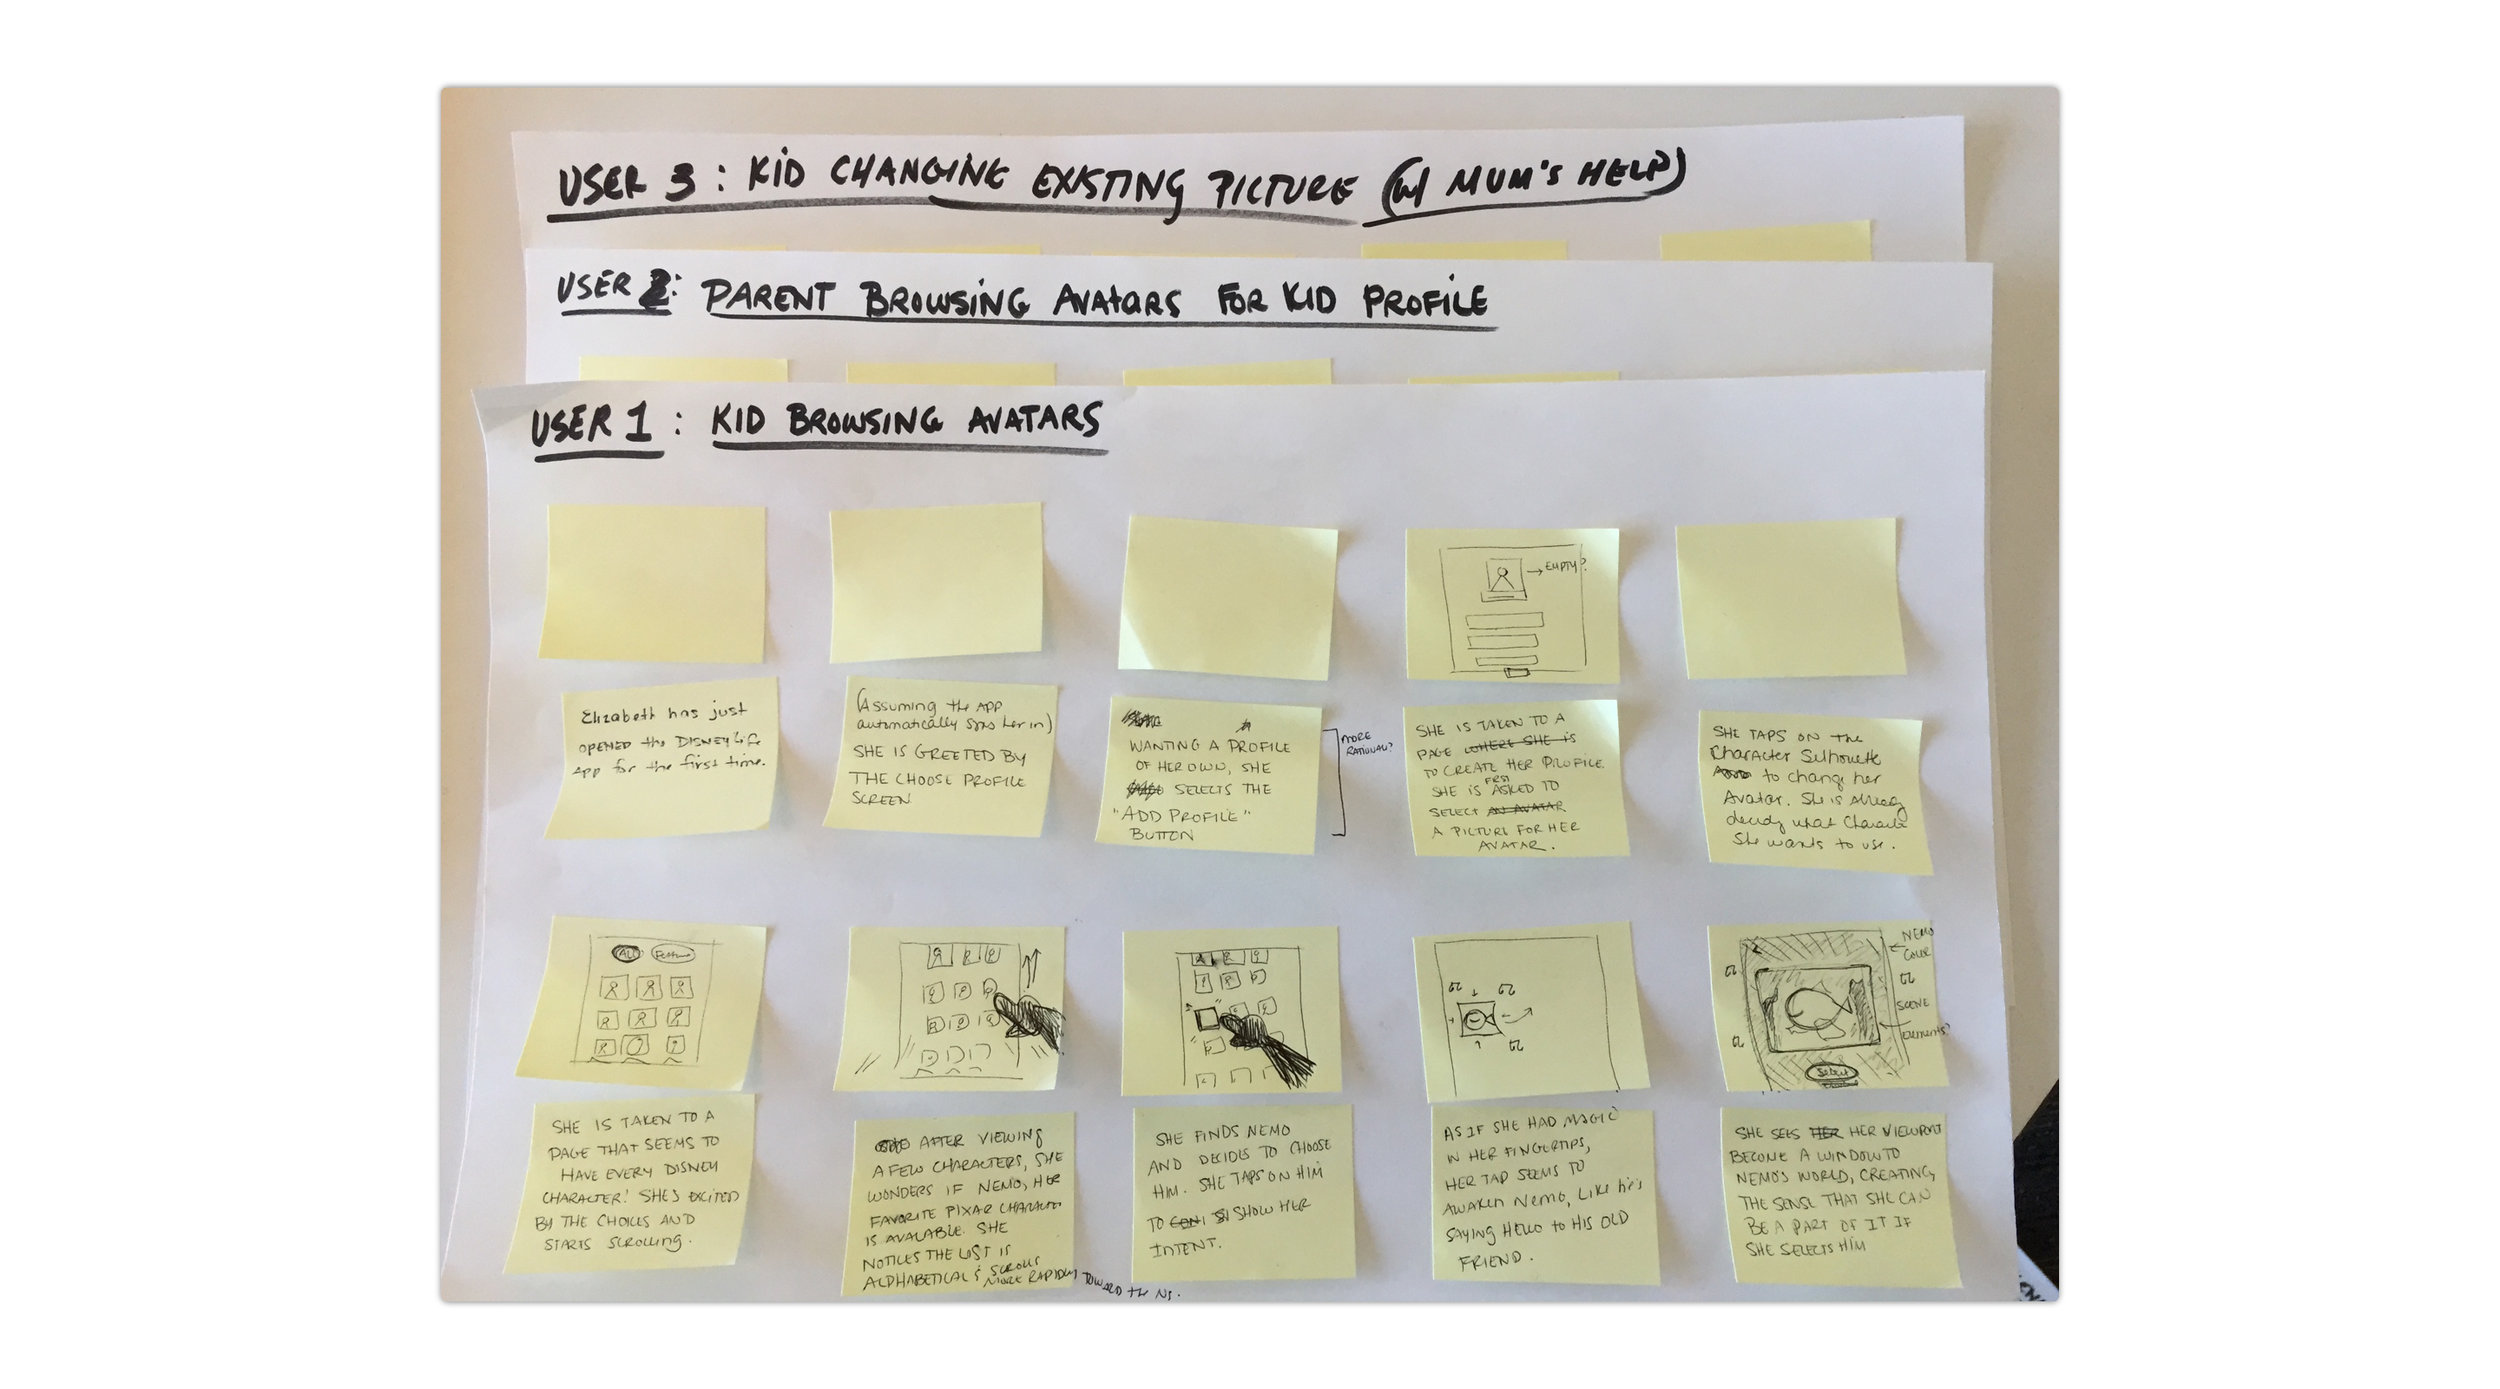 USER 3 : KID CHANGING EXISTING PICTURE (W/ MUM'S HELP)
USER 2: PARENT BROWSING AVATARS FOR KID PROFILE
USER 1 : KID BROWSING AVATARS
→ EMPTY?
Elizabeth has just
OPENED the DISNEYLife
App for the first time.
(Assuming the APP
automatically signs her in)
SHE IS GREETED BY
THE CHOOSE PROFILE
SCREEN
WANTING A PROFILE
OF HER OWN, SHE
SELECTS THE
"ADD PROFILE"
BUTTON
MORE
RATIONAL?
SHE IS TAKEN TO A
PAGE WHERE SHE IS
TO CREATE HER PROFILE.
SHE IS FIRST ASKED TO
SELECT AN AVATAR
A PICTURE FOR HER
AVATAR.
SHE TAPS ON the
Character Silhouette
to change her
Avatar. She is already
what
She wants to use.
ALL
NEMO
COLOR
SCENE
Elements?
Select
SHE IS TAKEN TO A
PAGE THAT SEEMS TO
HAVE EVERY DISNEY
CHARACTER! SHE'S EXCITED
BY THE CHOICES AND
STARTS SCROLLING.
AFTER VIEWING
A FEW CHARACTERS, SHE
WONDERS IF NEMO, HER
FAVORITE PIXAR CHARACTER
IS AVALABLE. SHE
NOTICES THE LIST IS
ALPHABETICAL & SCROLLS
MORE RAPIDLY TOWARD the N's.
SHE FINDS NEMO
AND DECIDES TO CHOOSE
HIM. SHE TAPS ON HIM
TO SHOW HER
INTENT.
AS IF SHE HAD MAGIC
IN HER FINGERTIPS,
HER TAP SEEMS TO
AWAKEN NEMO, LIKE he's
SAYING HELLO to HIS OLD
FRIEND.
SHE SEES HER HER VIEWPORT
BECOME A WINDOW TO
NEMO'S WORLD, CREATING
THE SENSE THAT SHE CAN
BE A PART OF IT IF
SHE SELECTS HIM